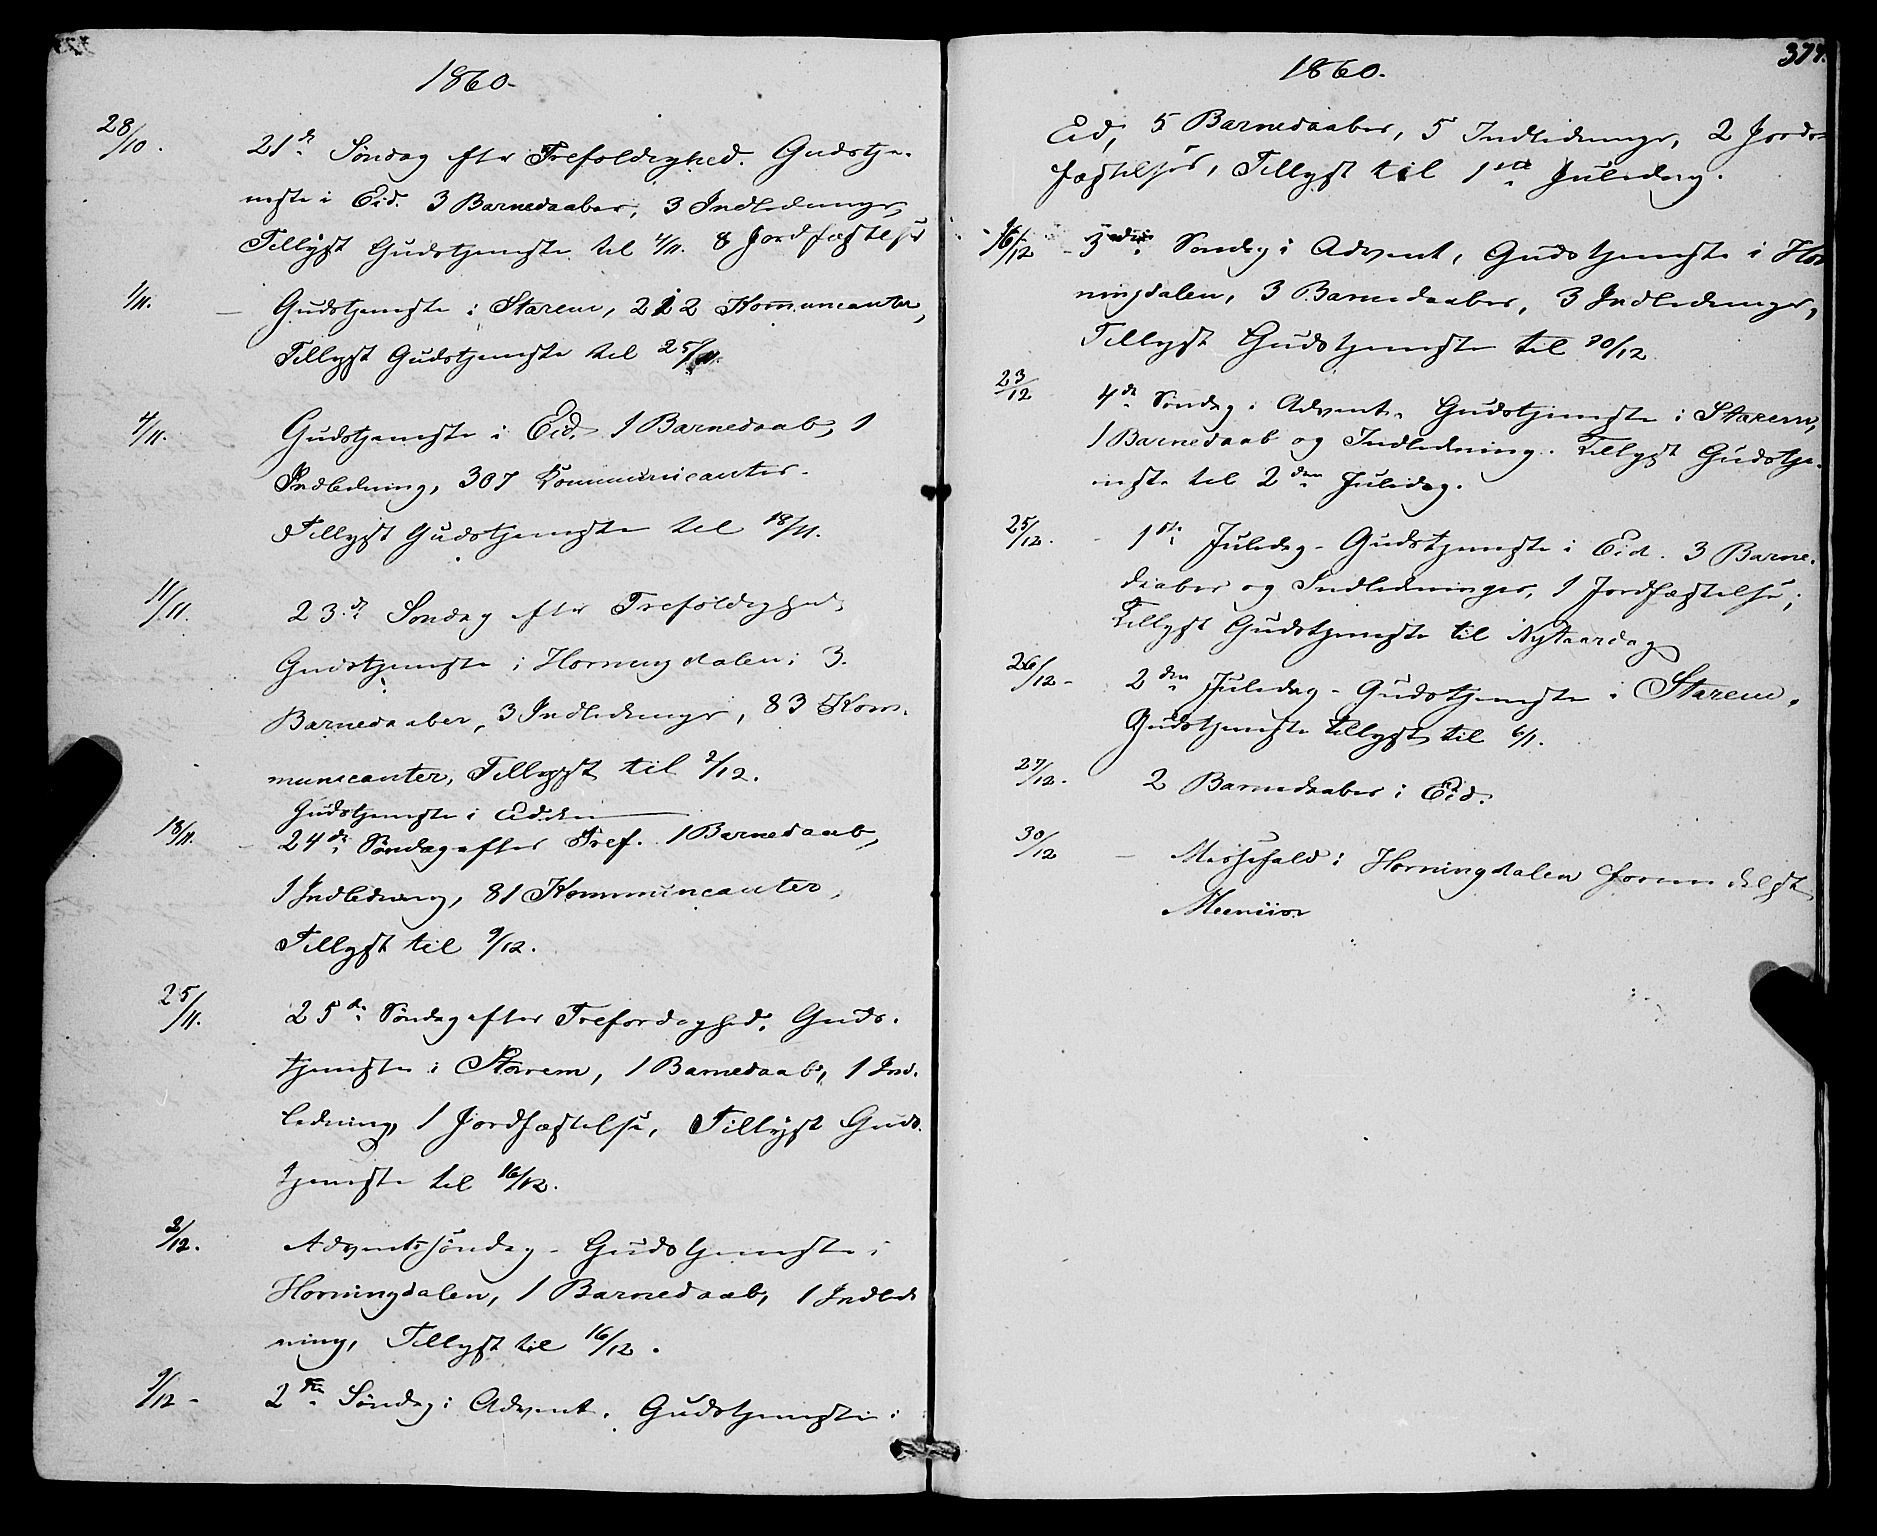 1860.
28/10. 21de Søndag efter Trefoldighed. Gudstje-
neste i Eid. 3 Barnedaaber, 3 Indledninger,
Tillyst Gudstjeneste til 4/11. 8 Jordfæstelser
1/11. – Gudstjeneste i Starem, 212 Kommunicanter,
Tillyst Gudstjeneste til 25/11.
4/11. Gudstjeneste i Eid. 1 Barnedaab, 1
Indledning, 307 Kommunicanter.
Tillyst Gudstjeneste til 18/11.
11/11. 23de Søndag efter Trefoldighed,
Gudstjeneste i Horningdalen; 3.
Barnedaaber, 3 Indledninger, 83 Kom-
municanter, Tillyst til 2/12.
Gudstjeneste i
18/11. – 24de Søndag efter Tref. 1 Barnedaab,
1 Indledning, 81 Kommunicanter,
Tillyst til 9/12.
25/11. 25de Søndag efter Trefordighed. Guds-
tjeneste i Starem, 1 Barnedaab, 1 Ind-
ledning, 1 Jordfæstelse, Tillyst Guds-
tjeneste til 16/12.
2/12. Adventssøndag – Gudstjeneste i
Horningdalen, 1 Barnedaab, 1 Indled-
ning, Tillyst til 16/12.
9/12 – 2den Søndag i Advent. Gudstjeneste i
1860.
374.
Eid, 5 Barnedaaber, 5 Indledninger, 2 Jord-
fæstelser, Tillyst til 1ste Juledag.
16/12 – 3die Søndag i Advent, Gudstjeneste i Hor-
ningdalen, 3 Barnedaaber, 3 Indledninger,
Tillyst Gudstjeneste til 30/12
23/12 4de Søndag i Advent. Gudstjeneste i Starem,
1 Barnedaab og Indledning. Tillyst Gudstje-
neste til 2den Juledag.
25/12. – 1ste Juledag – Gudstjeneste i Eid. 3 Barne-
daaber og Indledninger, 1 Jordfæstelse;
Tillyst Gudstjeneste til Nytaarsdag
26/12 – 2den Juledag – Gudstjeneste i Starem.
Gudstjeneste tillyst til 6/1.
27/12. 2 Barnedaaber i Eid.
30/12 – Messefald i Horningdalen formedelst
Meeniior